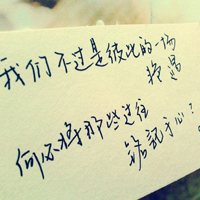 我们不过是彼此的一场
何必将那些过往
铭记于心？